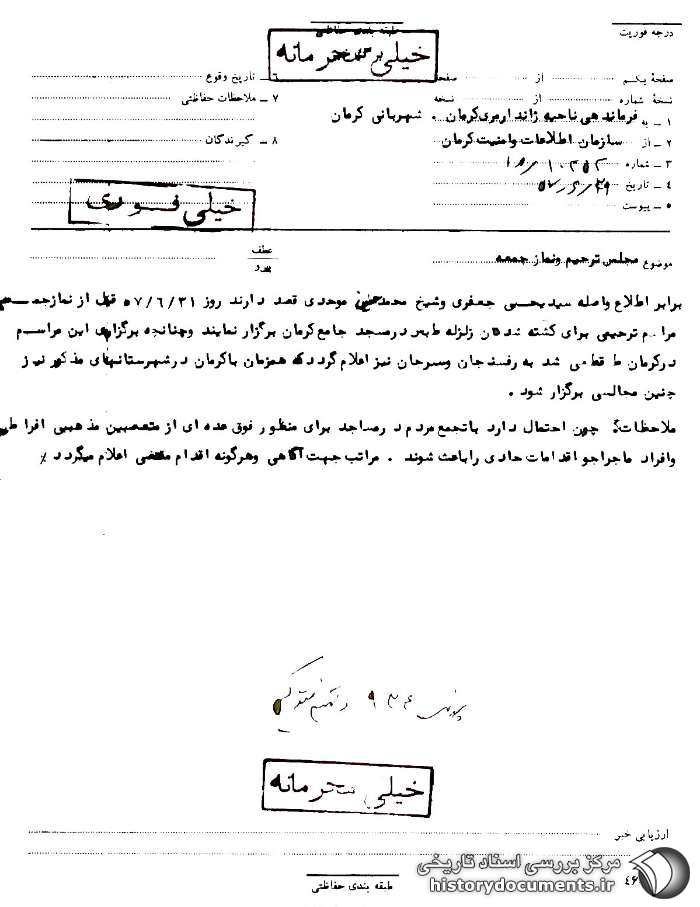 درجه فوریت
طبقه بندی حفاظتی
خیلی محرمانه
صفحهٔ یکم از صفحه
۶ ـ تاریخ وقوع
نسخهٔ شماره از نسخه
۷ ـ ملاحظات حفاظتی
۱ ـ به فرماندهی ناحیه ژاندارمری کرمان ـ شهربانی کرمان
۲ ـ از سازمان اطلاعات وامنیت کرمان
۸ ـ گیرندگان
۳ ـ شماره
۴ ـ تاریخ ۵۷/۶/۲۹
خیلی فوری
۵ ـ پیوست
عطف
پیرو
موضوع مجلس ترحیم ونماز جمعه
برابر اطلاع واصله سیدیحیی جعفری وشیخ محمد موحدی قصد دارند روز ۵۷/۶/۳۱ قبل از نمازجمعه
مراسم ترحیمی برای کشته شدگان زلزله طبس درمسجد جامع کرمان برگزار نمایند وچنانچه برگزاری این مراسم
درکرمان قطعی شد به رفسنجان وسیرجان نیز اعلام گردد که همزمان باکرمان درشهرستانهای مذکور نیز
چنین مجالسی برگزار شود .
ملاحظات: چون احتمال دارد باتجمع مردم در مساجد برای منظور فوق عده ای از متعصبین مذهبی افراطی
وافراد ماجراجو اقدامات حادی راباعث شوند . مراتب جهت آگاهی وهرگونه اقدام مقتضی اعلام میگردد /
خیلی محرمانه
ارزیابی خبر
طبقه بندی حفاظتی
مرکز بررسی اسناد تاریخی
historydocuments.ir